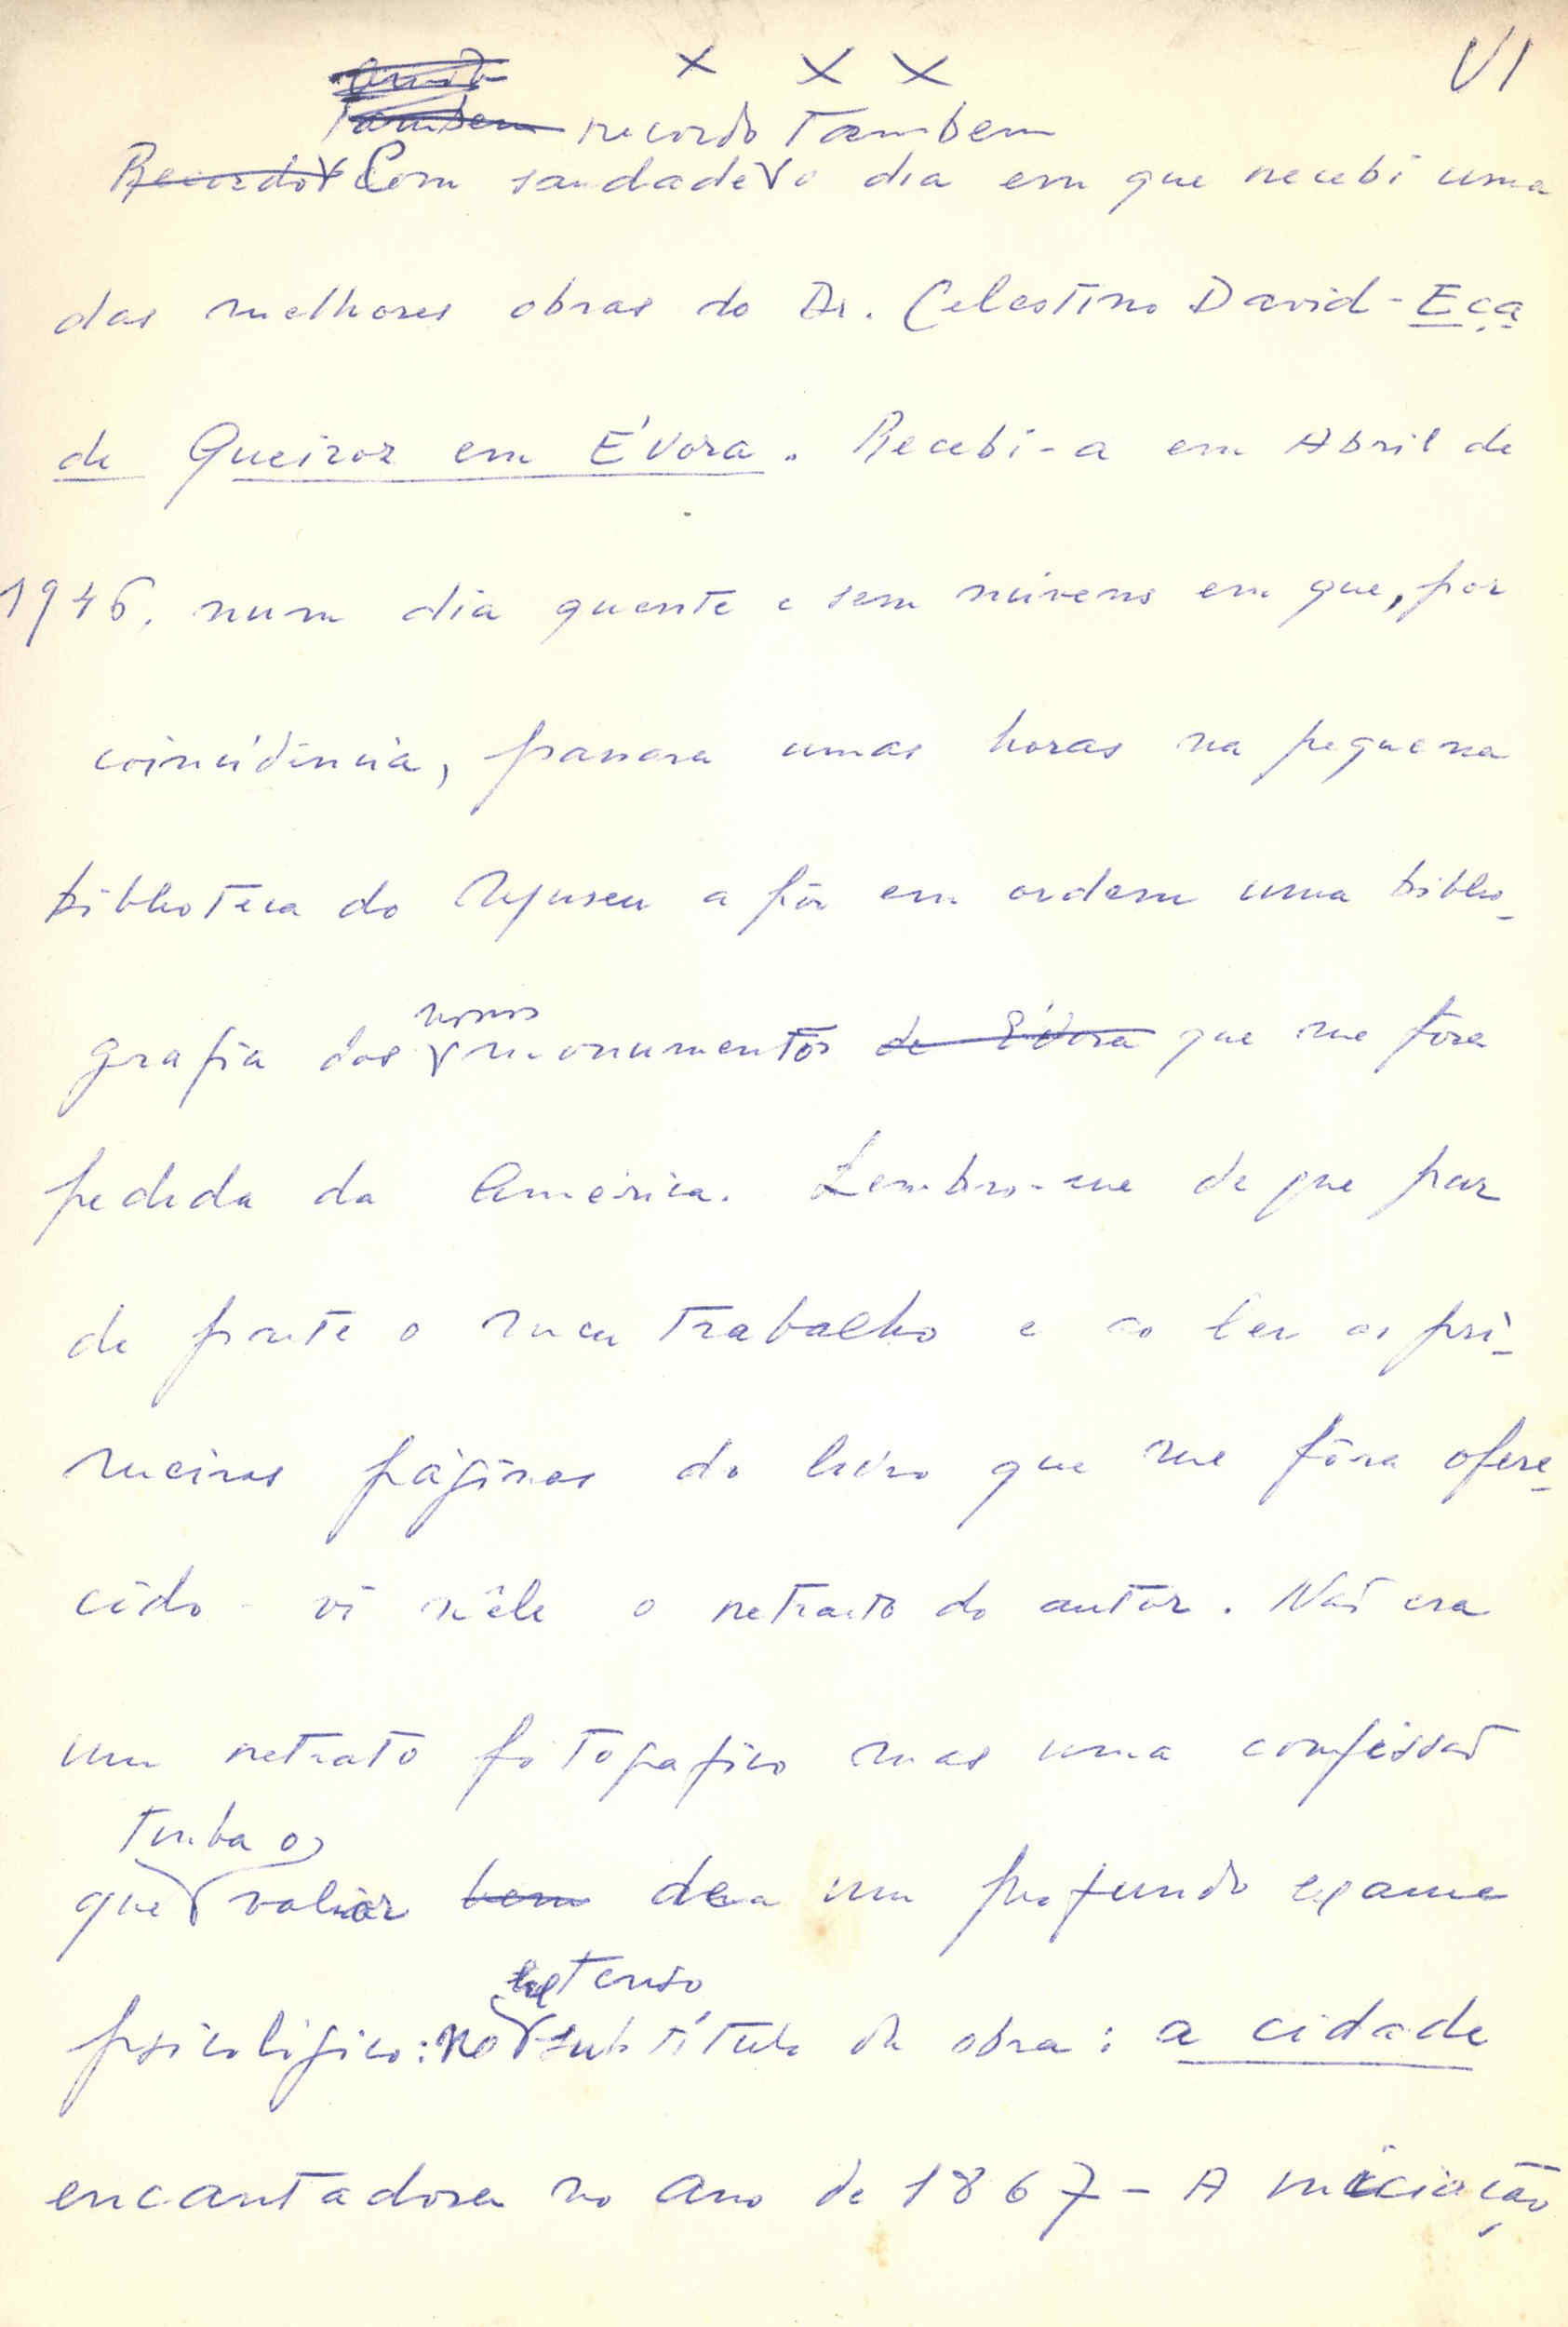 x x x VI
Tambem recordo Tambem
Recordo Com saudade o dia em que recebi uma
das melhores obras do Dr. Celestino David - Eça
de Queiroz em Évora. Recebi-a em Abril de
1946, num dia quente e sem núvens em que, por
coincidência, passara umas horas na pequena
biblioteca do Museu a pôr em ordem uma biblio-
grafia dos nossos monumentos de Évora que me fora
pedida da America. Lembro-me de que puz
de parte o meu trabalho e ao ler as pri-
meiras páginas do livro que me fôra ofere-
cido - vi nêle o retrato do autor. Não era
um retrato fotografico mas uma confissão
Tinha o
que valor bem de um profundo exame
extenso
psicológico: no subtítulo da obra: a cidade
encantadora no ano de 1867 - A iniciação